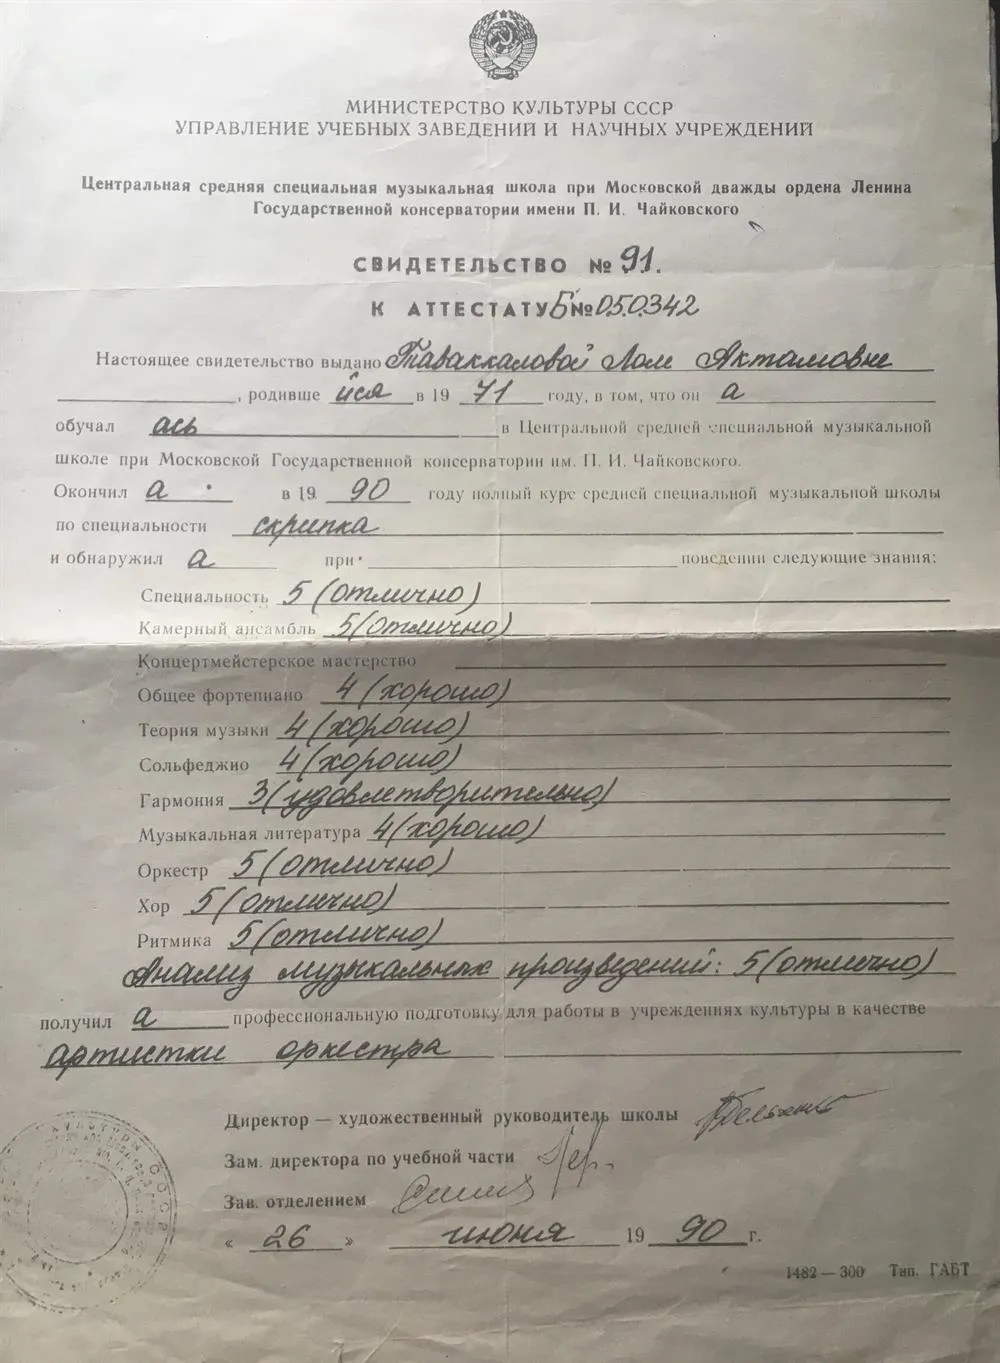 МИНИСТЕРСТВО КУЛЬТУРЫ СССР
УПРАВЛЕНИЕ УЧЕБНЫХ ЗАВЕДЕНИЙ И НАУЧНЫХ УЧРЕЖДЕНИЙ
Центральная средняя специальная музыкальная школа при Московской дважды ордена Ленина
Государственной консерватории имени П. И. Чайковского
СВИДЕТЕЛЬСТВО № 91.
К АТТЕСТАТУ Б № 050342
Настоящее свидетельство выдано Таваккаловой Лоле Актамовне
, родивше йся в 19 71 году, в том, что он а
обучал ась в Центральной средней специальной музыкальной
школе при Московской Государственной консерватории им. П. И. Чайковского.
Окончил а в 19 90 году полный курс средней специальной музыкальной школы
по специальности скрипка
и обнаружил а при поведении следующие знания:
Специальность 5 (отлично)
Камерный ансамбль 5 (отлично)
Концертмейстерское мастерство
Общее фортепиано 4 (хорошо)
Теория музыки 4 (хорошо)
Сольфеджио 4 (хорошо)
Гармония 3 (удовлетворительно)
Музыкальная литература 4 (хорошо)
Оркестр 5 (отлично)
Хор 5 (отлично)
Ритмика 5 (отлично)
Анализ музыкальных произведений: 5 (отлично)
получил а профессиональную подготовку для работы в учреждениях культуры в качестве
артистки оркестра
Директор — художественный руководитель школы
Зам. директора по учебной части
Зав. отделением
« 26 » июня 19 90 г.
1482 — 300 Тип. ГАБТ